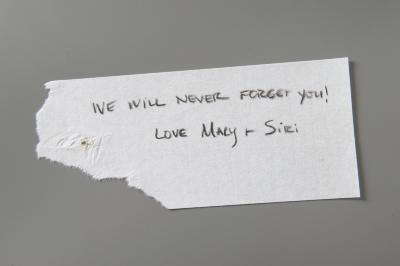 WE WILL NEVER FORGET YOU!
LOVE MARY + SIRI